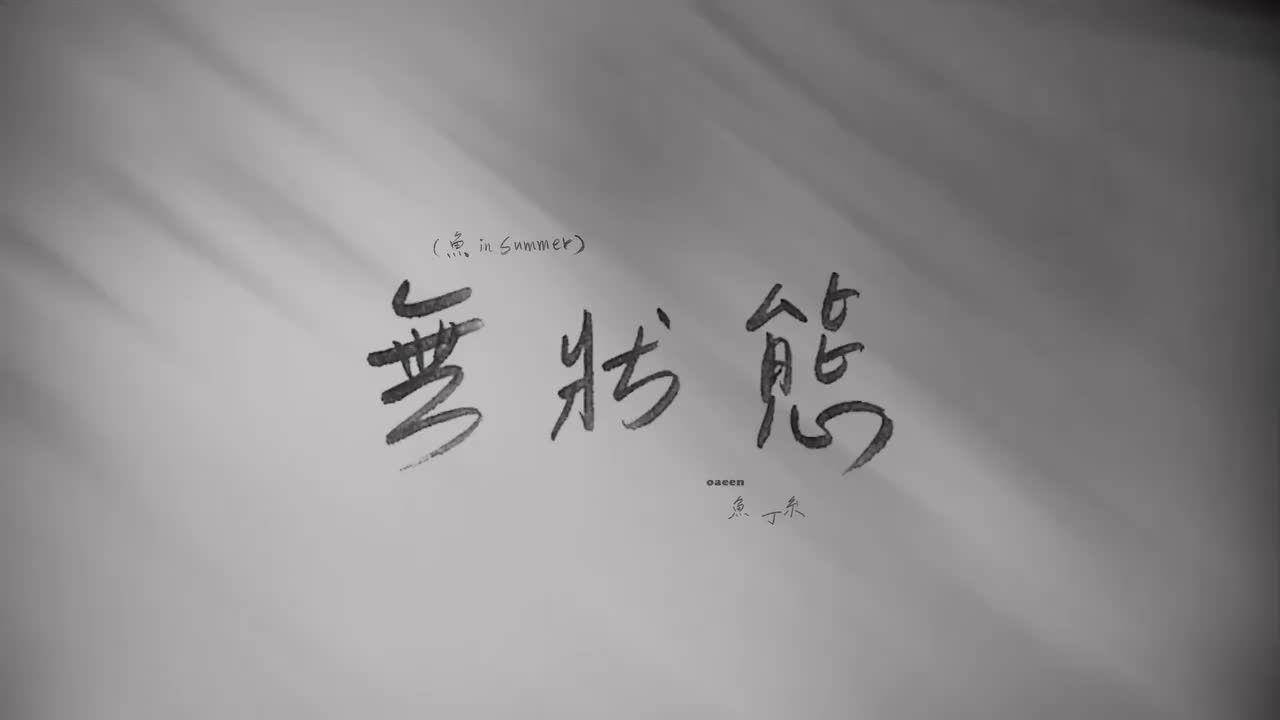 (魚 in summer)
無狀態
oaeen
魚丁糸